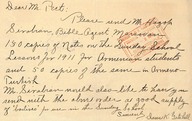 Dear Mr. Peet:
Please send Mr. Hagop
Serabian, Bible Agent Marsovan
190 copies of Notes on the Sunday School
Lessons for 1911 for Armenian students
and 50 copies of the same in Armeno
Turkish
Mr. Serabian would also like to have you
send with the above order a good supply
of for use in the Sunday
Sincerely